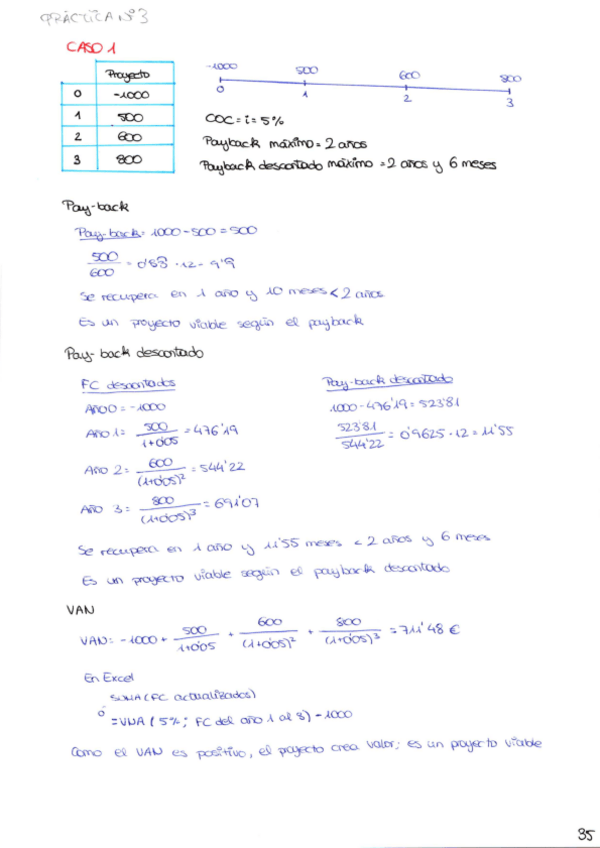 PRÁCTICA Nº3
CASO 1
Proyecto
0 -1000
1 500
2 600
3 800
-1000 500 600 800
0 1 2 3
COC = i = 5%
Payback máximo = 2 años
Payback descontado máximo = 2 años y 6 meses
Pay-back
Pay-back = 1000 - 500 = 500
500/600 = 0'83 · 12 = 9'9
Se recupera en 1 año y 10 meses < 2 años
Es un proyecto viable según el payback
Pay-back descontado
FC descontados
Año 0 = -1000
Año 1 = 500/1+0'05 = 476'19
Año 2 = 600/(1+0'05)² = 544'22
Año 3 = 800/(1+0'05)³ = 691'07
Pay-back descontado
1000 - 476'19 = 523'81
523'81/544'22 = 0'9625 · 12 = 11'55
Se recupera en 1 año y 11'55 meses < 2 años y 6 meses
Es un proyecto viable según el payback descontado
VAN
VAN = -1000 + 500/1+0'05 + 600/(1+0'05)² + 800/(1+0'05)³ = 711'48 €
En Excel
SUMA (FC actualizados)
ó
= VNA (5%; FC del año 1 al 3) - 1000
Como el VAN es positivo, el proyecto crea valor; es un proyecto viable
35